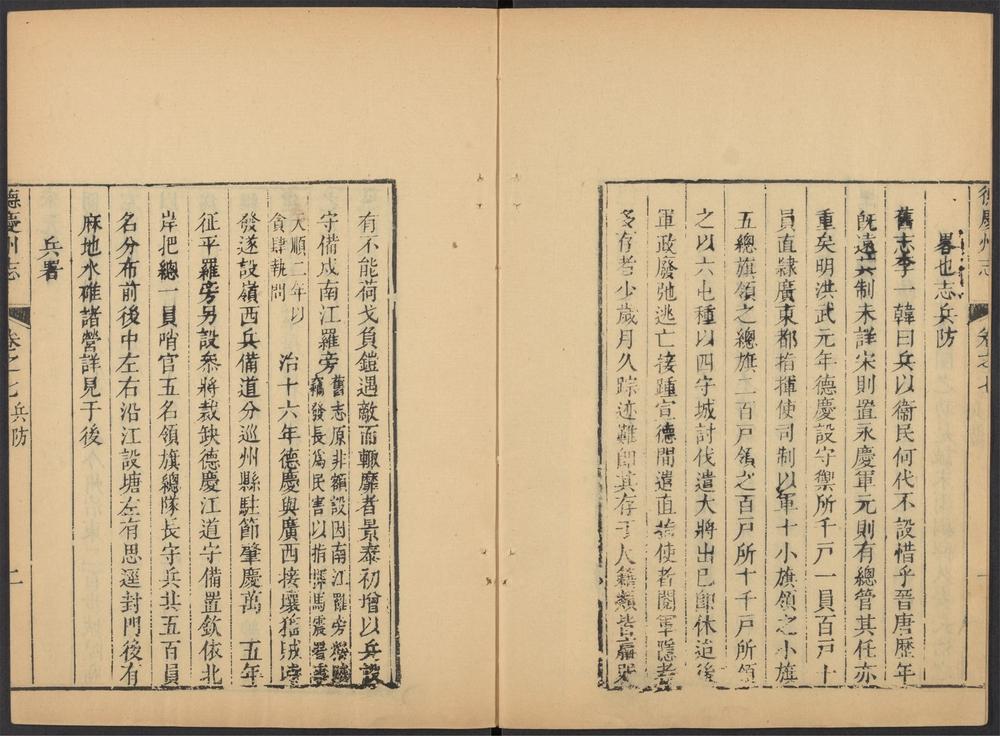 德慶州志
卷之七
畧也志兵防
舊志李一韓曰兵以衞民何代不設惜乎晉唐歷年
旣遠其制未詳宋則置永慶軍元則有總管其任亦
重矣明洪武元年德慶設守禦所千戸一員百戸十
員直隸廣東都指揮使司制以軍十小旗領之小旗
五總旗領之總旗二百戸領之百戸所十千戸所領
之以六屯種以四守城討伐遣大將出已卽休迨後
軍政廢弛逃亡接踵宣德間遺直指使者閱軍隱老
多有者少歲月久踪迹難卽其存于人籍類皆羸
有不能荷戈負鎧遇敵而輙靡者景泰初增以兵設
守備戍南江羅旁舊志原非額設因南江羅旁猺賊
竊發長爲民害以指揮馬震署事
天順二年以
貪肆執問
治十六年德慶與廣西接壤猺賊
發遂設嶺西兵備道分巡州縣駐節肇慶萬 五年
征平羅旁另設叅將裁缺德慶江道守備置欽依北
岸把總一員哨官五名領旗總隊長守兵共五百員
名分布前後中左右沿江設塘左有思逕封門後有
麻地水碓諸營詳見于後
兵署
德慶州志
卷之七兵防
二